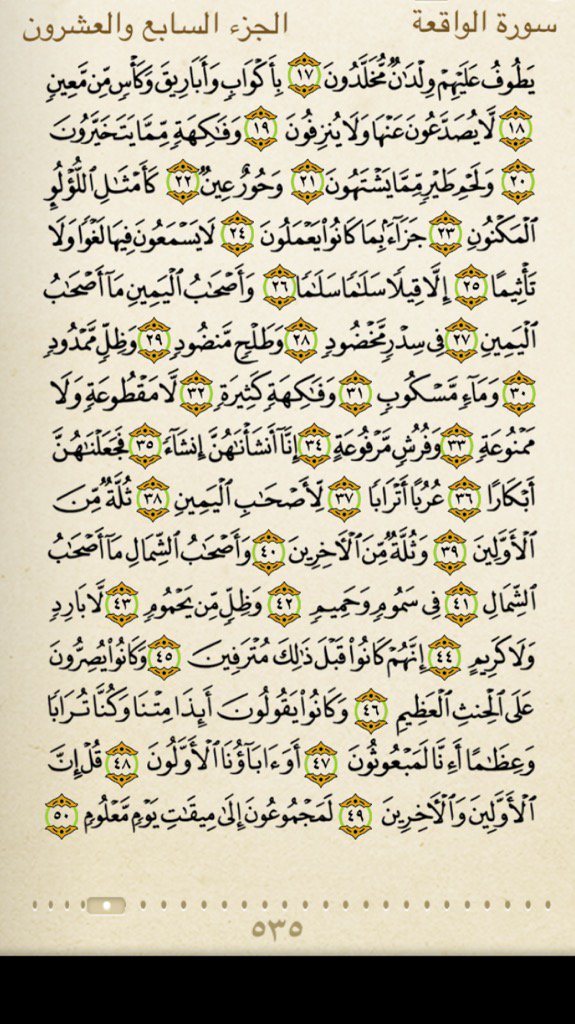 سورة الواقعة
الجزء السابع والعشرون
يَطُوفُ عَلَيْهِمْ وِلْدَٰنٌ مُّخَلَّدُونَ ١٧ بِأَكْوَابٍ وَأَبَارِيقَ وَكَأْسٍ مِّن مَّعِينٍ
١٨ لَّا يُصَدَّعُونَ عَنْهَا وَلَا يُنزِفُونَ ١٩ وَفَٰكِهَةٍ مِّمَّا يَتَخَيَّرُونَ
٢٠ وَلَحْمِ طَيْرٍ مِّمَّا يَشْتَهُونَ ٢١ وَحُورٌ عِينٌ ٢٢ كَأَمْثَٰلِ ٱللُّؤْلُؤِ
ٱلْمَكْنُونِ ٢٣ جَزَآءًۢ بِمَا كَانُوا۟ يَعْمَلُونَ ٢٤ لَا يَسْمَعُونَ فِيهَا لَغْوًا وَلَا
تَأْثِيمًا ٢٥ إِلَّا قِيلًا سَلَٰمًا سَلَٰمًا ٢٦ وَأَصْحَٰبُ ٱلْيَمِينِ مَآ أَصْحَٰبُ
ٱلْيَمِينِ ٢٧ فِى سِدْرٍ مَّخْضُودٍ ٢٨ وَطَلْحٍ مَّنضُودٍ ٢٩ وَظِلٍّ مَّمْدُودٍ
٣٠ وَمَآءٍ مَّسْكُوبٍ ٣١ وَفَٰكِهَةٍ كَثِيرَةٍ ٣٢ لَّا مَقْطُوعَةٍ وَلَا
مَمْنُوعَةٍ ٣٣ وَفُرُشٍ مَّرْفُوعَةٍ ٣٤ إِنَّآ أَنشَأْنَٰهُنَّ إِنشَآءً ٣٥ فَجَعَلْنَٰهُنَّ
أَبْكَارًا ٣٦ عُرُبًا أَتْرَابًا ٣٧ لِّأَصْحَٰبِ ٱلْيَمِينِ ٣٨ ثُلَّةٌ مِّنَ
ٱلْأَوَّلِينَ ٣٩ وَثُلَّةٌ مِّنَ ٱلْءَاخِرِينَ ٤٠ وَأَصْحَٰبُ ٱلشِّمَالِ مَآ أَصْحَٰبُ
ٱلشِّمَالِ ٤١ فِى سَمُومٍ وَحَمِيمٍ ٤٢ وَظِلٍّ مِّن يَحْمُومٍ ٤٣ لَّا بَارِدٍ
وَلَا كَرِيمٍ ٤٤ إِنَّهُمْ كَانُوا۟ قَبْلَ ذَٰلِكَ مُتْرَفِينَ ٤٥ وَكَانُوا۟ يُصِرُّونَ
عَلَى ٱلْحِنثِ ٱلْعَظِيمِ ٤٦ وَكَانُوا۟ يَقُولُونَ أَئِذَا مِتْنَا وَكُنَّا تُرَابًا
وَعِظَٰمًا أَءِنَّا لَمَبْعُوثُونَ ٤٧ أَوَءَابَآؤُنَا ٱلْأَوَّلُونَ ٤٨ قُلْ إِنَّ
ٱلْأَوَّلِينَ وَٱلْءَاخِرِينَ ٤٩ لَمَجْمُوعُونَ إِلَىٰ مِيقَٰتِ يَوْمٍ مَّعْلُومٍ ٥٠
٥٣٥